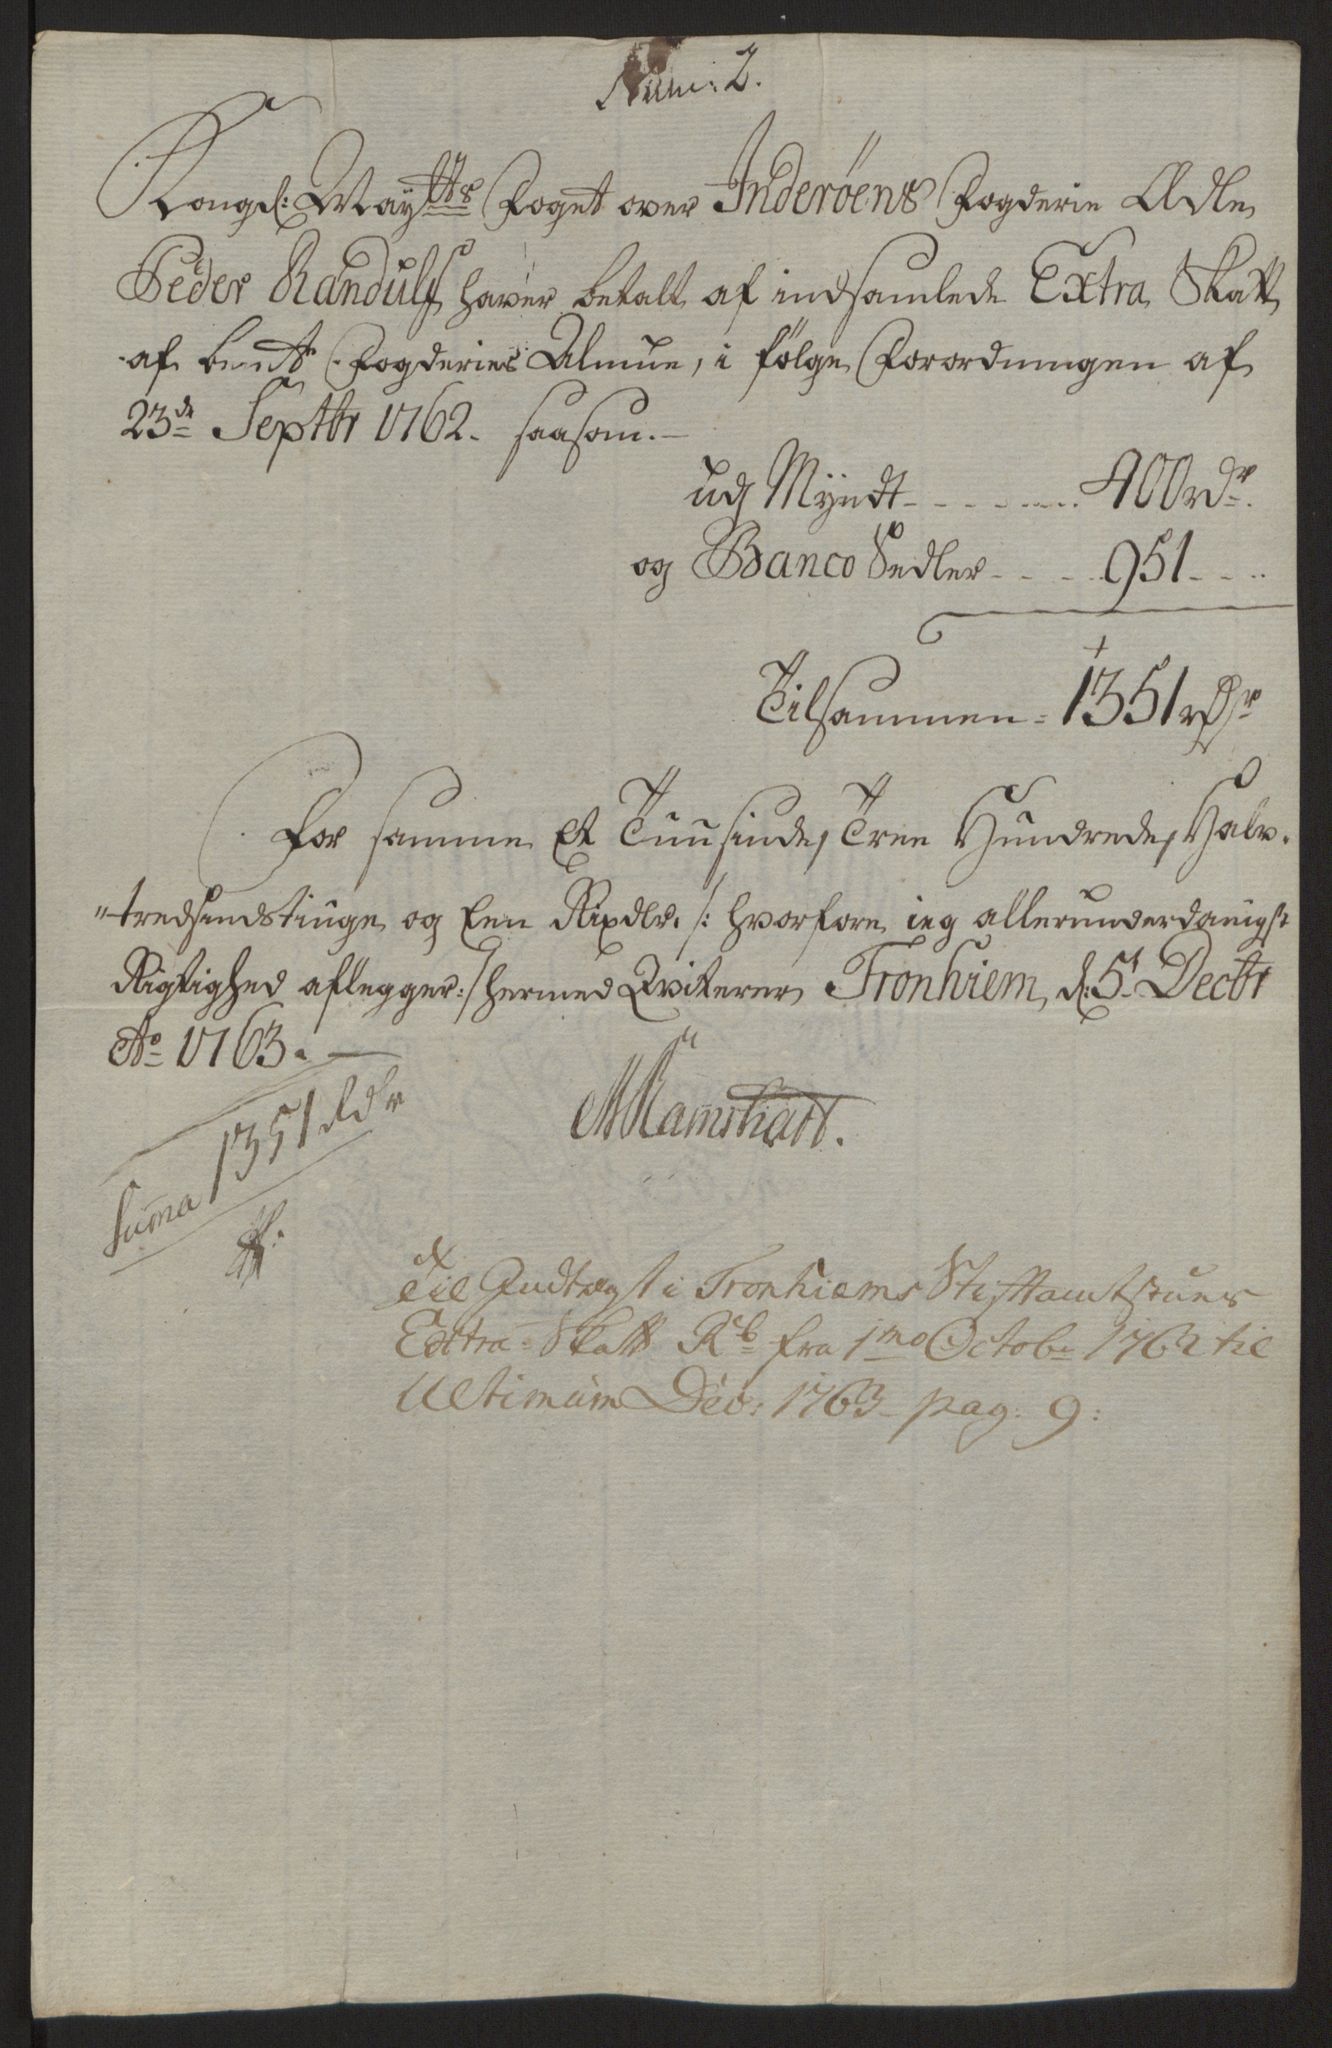 Num: 2.
Kongel: Maytts Foget over Inderöens Fogderie Ædle
Peder Randulf haver betalt af indsamlede Extra Skatt
af bemte Fogderies Almue, i fölge Forordningen af
23de Septbr 1762. saasom.
udj Myndt - - - - - 400 rdr.
og Banco Sedler - - - 951 - -
Tilsammen = 1351 rdr
For samme Et Tuusinde, Tree Hundrede, Halv-
"tredsindstiuge og Een Rixdlr. /: hvorfore ieg allerunderdanigst
Rigtighed aflegger :/ hermed Qviterer Tronhiem, d: 5t Decbr
Ao 1763.
Suma 1351 Rdr
MRamshart.
Til Indtægt i Tronhiems Stiftamtstues
Extra-Skatt Rb fra 1mo Octobr 1762 til
Ultimum Dec: 1763 pag: 9: